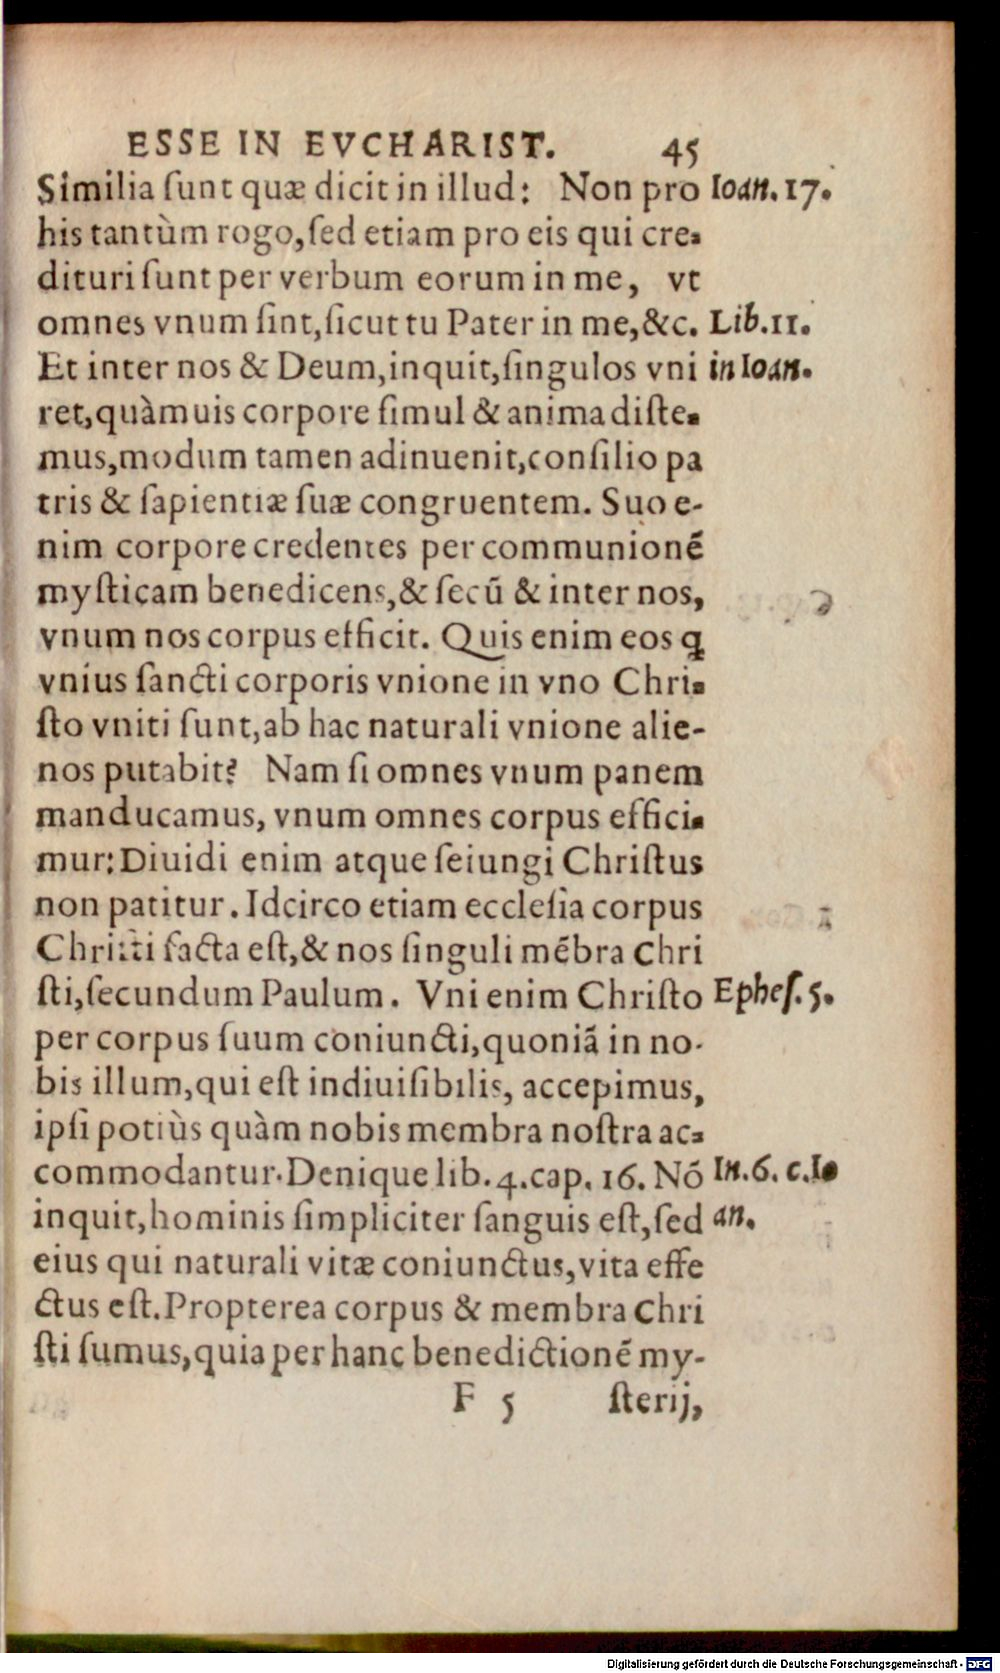 ESSE IN EVCHARIST. 45
Similia ſunt quæ dicit in illud: Non pro Ioan. 17.
his tantùm rogo, ſed etiam pro eis qui cre-
dituri ſunt per verbum eorum in me, vt
omnes vnum ſint, ſicut tu Pater in me, &c. Lib. 11.
Et inter nos & Deum, inquit, ſingulos vni in Ioan.
ret, quàmuis corpore ſimul & anima diſte-
mus, modum tamen adinuenit, conſilio pa
tris & ſapientiæ ſuæ congruentem. Suo e-
nim corpore credentes per communionẽ
myſticam benedicens, & ſecũ & inter nos,
vnum nos corpus efficit. Quis enim eos ꝗ
vnius ſancti corporis vnione in vno Chri-
ſto vniti ſunt, ab hac naturali vnione alie-
nos putabit? Nam ſi omnes vnum panem
manducamus, vnum omnes corpus effici-
mur: Diuidi enim atque ſeiungi Chriſtus
non patitur. Idcirco etiam eccleſia corpus
Chriſti facta eſt, & nos ſinguli mẽbra Chri
ſti, ſecundum Paulum. Vni enim Chriſto Epheſ. 5.
per corpus ſuum coniuncti, quoniã in no-
bis illum, qui eſt indiuiſibilis, accepimus,
ipſi potiùs quàm nobis membra noſtra ac-
commodantur. Denique lib. 4. cap. 16. Nõ In. 6. c. Io
inquit, hominis ſimpliciter ſanguis eſt, ſed an.
eius qui naturali vitæ coniunctus, vita effe
ctus eſt. Propterea corpus & membra Chri
ſti ſumus, quia per hanc benedictionẽ my-
F 5 ſterij,
Digitalisierung gefördert durch die Deutsche Forschungsgemeinschaft - DFG